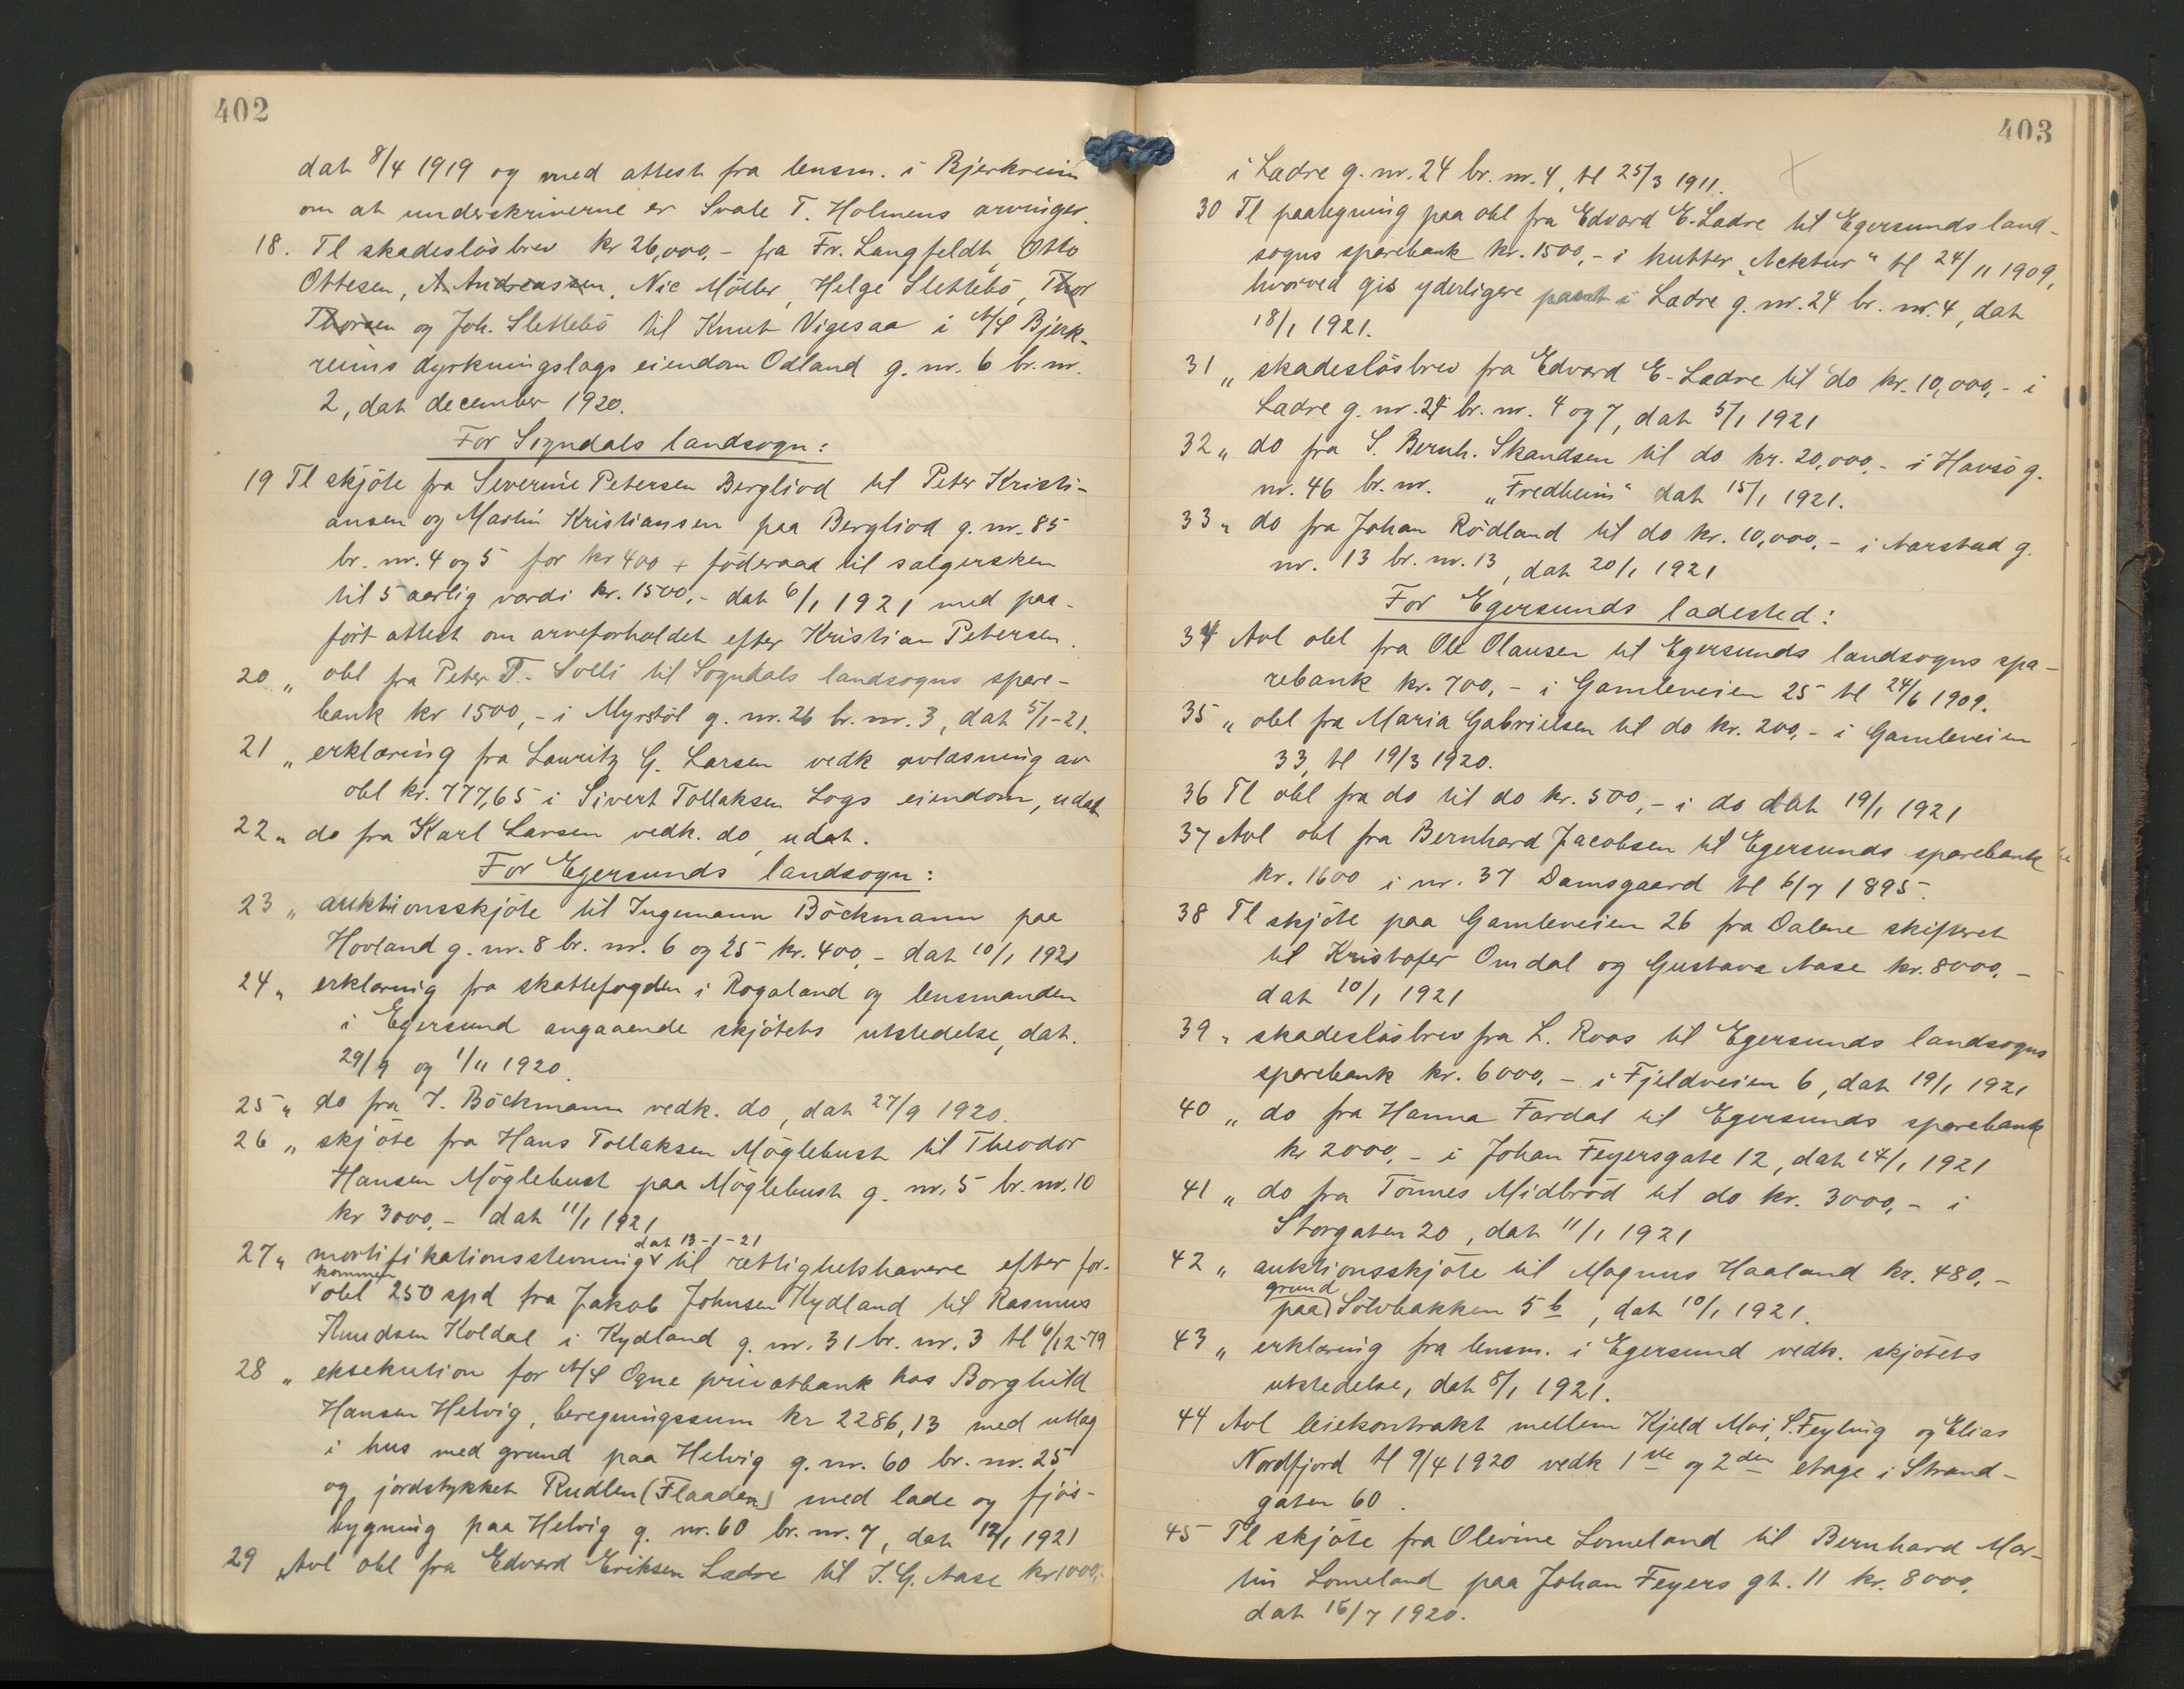 402
dat 8/4 1919 og med attest fra lensm. i Bjerkreim
om at underskriverne er Svale T. Holmens arvinger.
18. Tl skadeslösbrev kr 26,000,- fra Fr. Langfeldt, Otto
Ottesen, A. Andreassen, Nic Möller, Helge Slettebö, Thor
Thorsen og Joh. Slettebö til Knut Vigesaa i A/S Bjerk-
reims dyrkningslags eiendom Odland g. nr. 6 br. nr.
2, dat december 1920.
For Sogndals landsogn:
19 Tl skjöte fra Severine Petersen Bergliod til Peter Kristi-
ansen og Martin Kristiansen paa Bergliod g. nr. 85
br. nr. 4 og 5 for kr 400 + föderaad til sælgersken
til 5 aarlig værdi kr. 1500,- dat 6/1 1921 med paa-
fört attest om arveforholdet efter Kristian Petersen.
20 „ obl fra Peter T. Solli til Sogndals landsogns spare-
bank kr 1500,- i Myrstöl g. nr. 26 br. nr. 3, dat 5/1-21.
21 „ erklæring fra Lauritz G. Larsen vedk avlæsning av
obl kr. 777,65 i Sivert Tollaksen Logs eiendom, udat
22 „ do fra Karl Larsen vedk. do, udat.
For Egersunds landsogn:
23 „ auktionsskjöte til Ingemann Böckmann paa
Hovland g. nr. 8 br. nr. 6 og 25 kr. 400,- dat 10/1 1921
24 „ erklæring fra skattefogden i Rogaland og lensmanden
i Egersund angaaende skjötets utstedelse, dat.
29/9 og 1/11 1920.
25 „ do fra I. Böckmann vedk. do, dat 27/9 1920.
26 „ skjöte fra Hans Tollaksen Möglebust til Theodor
Hansen Möglebust paa Möglebust g. nr. 5 br. nr. 10
kr 3000,- dat 11/1 1921
dat 13-1-21
27 „ mortifikationsstevning til rettighetshavere efter for-
kommen
obl 250 spd fra Jakob Johnsen Kydland til Rasmus
Amdsen Koldal i Kydland g. nr. 31 br. nr. 3 tl 6/12-79
28 „ eksekution for A/S Ogne privatbank hos Borghild
Hansen Helvig, beregningssum kr 2286,13 med utlæg
i hus med grund paa Helvig g. nr. 60 br. nr. 25
og jordstykket Rudlen (Flaaden) med lade og fjös-
bygning paa Helvig g. nr. 60 br. nr. 7, dat 12/1 1921
29 Avl obl fra Edvard Eriksen Ladre til I. G. Aase kr 1000,-
403
i Ladre g. nr. 24 br. nr. 4, tl 25/3 1911.
30 Tl paategning paa obl fra Edvard E. Ladre til Egersunds land-
sogns sparebank kr. 1500,- i kutter „Arktur“ tl 24/11 1909,
hvorved gis yderligere pant i Ladre g. nr. 24 br. nr. 4, dat
18/1 1921.
31 „ skadeslösbrev fra Edvard E. Ladre til do kr. 10,000,- i
Ladre g. nr. 24 br. nr. 4 og 7, dat 5/1 1921
32 „ do fra S. Bernh. Skandsen til do kr. 20,000,- i Havsö g.
nr. 46 br. nr. „Fredheim“ dat 15/1 1921.
33 „ do fra Johan Rödland til do kr. 10,000,- i Aarstad g.
nr. 13 br. nr. 13, dat 20/1 1921
For Egersunds ladested:
34 Avl obl fra Ole Olausen til Egersunds landsogns spa-
rebank kr. 700,- i Gamleveien 25 tl 24/6 1909.
35 „ obl fra Maria Gabrielsen til do kr. 200,- i Gamleveien
33, tl 19/3 1920.
36 Tl obl fra do til do kr. 500,- i do dat 19/1 1921
37 Avl obl fra Bernhard Jacobsen til Egersunds sparebank
kr. 1600 i nr. 37 Damsgaard tl 6/7 1895.
38 Tl skjöte paa Gamleveien 26 fra Dalene skifteret
til Kristofer Omdal og Gustava Aase kr. 8000,-
dat 10/1 1921
39 „ skadeslösbrev fra L. Roos til Egersunds landsogns
sparebank kr. 6000,- i Fjeldveien 6, dat 19/1 1921
40 „ do fra Hanna Fardal til Egersunds sparebank
kr 2000,- i Johan Feyersgate 12, dat 14/1 1921
41 „ do fra Tönnes Midbröd til do kr. 3000,- i
Storgaten 20, dat 11/1 1921
42 „ auktionsskjöte til Magnus Haaland kr. 480,-
grund
paa Sölvbakken 5 b, dat 10/1 1921.
43 „ erklæring fra lensm. i Egersund vedk. skjötets
utstedelse, dat 8/1 1921.
44 Avl leiekontrakt mellem Kjeld Moi, S. Feyling og Elias
Nordfjord tl 9/4 1920 vedk 1ste og 2den etage i Strand-
gaten 60.
45 Tl skjöte fra Olevine Lomeland til Bernhard Mar-
tin Lomeland paa Johan Feyers gt. 11 kr. 8000,
dat 15/7 1920.